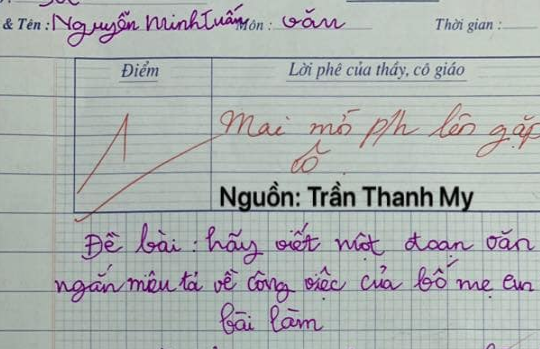 & Tên: Nguyễn Minh Tuấn Môn: văn Thời gian:
Điểm Lời phê của thầy, cô giáo
1
Mai mời p/h lên gặp
cô
Nguồn: Trần Thanh My
Đề bài: hãy viết một đoạn văn
ngắn miêu tả về công việc của bố mẹ em
bài làm